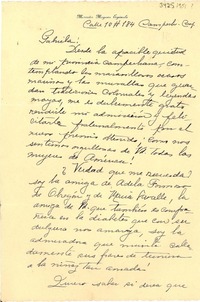 Mercedes Maiquez Cepeda
Calle 10 # 184 Campeche, Cam.
Gabriela:
Desde la apacible quietud
de mi provincia campechana, con-
templando los maravillosos ocasos
marinos y las murallas que guar-
dan tradiciones coloniales y leyendas
mayas, me es dulcemente grato
remitirle mi admiración y feli-
citarla fraternalmente por el
nuevo premio obtenido; como nos
sentimos orgullosas de Ud. todas las
mujeres de América!
¿Verdad que me recuerda?
soy la amiga de Adela Formoso
de Obregón y de Neide Revalle, la
amiga de Ud. que también es compa-
ñera en la diabetes que con
dulzura nos amarga, soy la
admiradora que musita calla-
damente sus frases de ternura
a la niñez tan amada!
Quiero saber si desea que